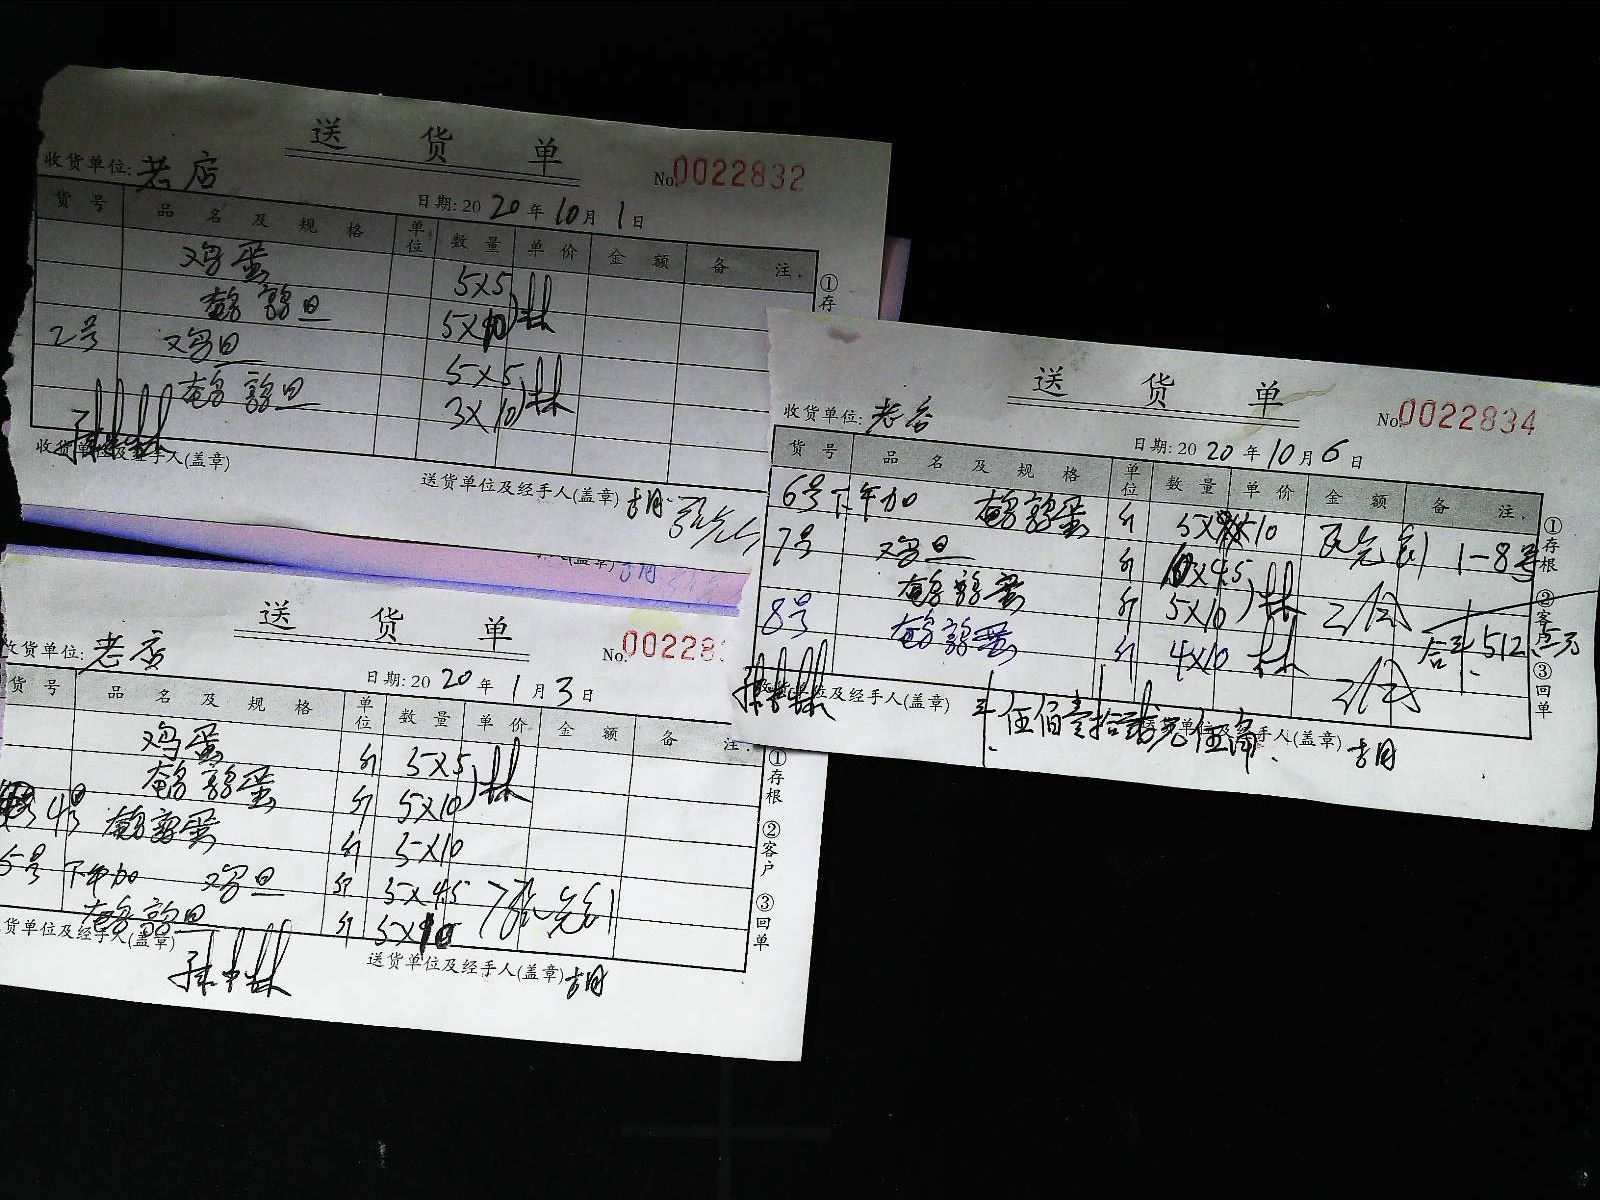 送 货 单
收货单位: 老店
No. 0022832
日期: 2020年10月1日
货号 品名及规格 单位 数量 单价 金额 备注.
鸡蛋 5×5
鹌鹑旦 5×10
2号 鸡旦 5×5
鹌鹑旦 3×10
收货单位及经手人(盖章)
送货单位及经手人(盖章)
①存
送 货 单
收货单位: 老店
No. 0022834
日期: 2020年10月6日
货号 品名及规格 单位 数量 单价 金额 备注.
6号下午加 鹌鹑蛋 斤
1-8号
7号 鸡旦 斤 10×4.5
鹌鹑蛋 斤 5×10
8号 鹌鹑蛋 斤 4×10
合计 512
收货单位及经手人(盖章)
伍佰壹拾 元伍角
送货单位及经手人(盖章)
①存根 ②客户 ③回单
送 货 单
收货单位: 老店
No. 00228
日期: 2020年1月3日
货号 品名及规格 单位 数量 单价 金额 备注.
鸡蛋 斤 5×5
鹌鹑蛋 斤 5×10
4号 鹌鹑蛋 斤 5×10
5号 下午加 鸡旦 斤 5×4.5
鹌鹑旦 斤 5×10
货单位及经手人(盖章)
送货单位及经手人(盖章)
①存根 ②客户 ③回单